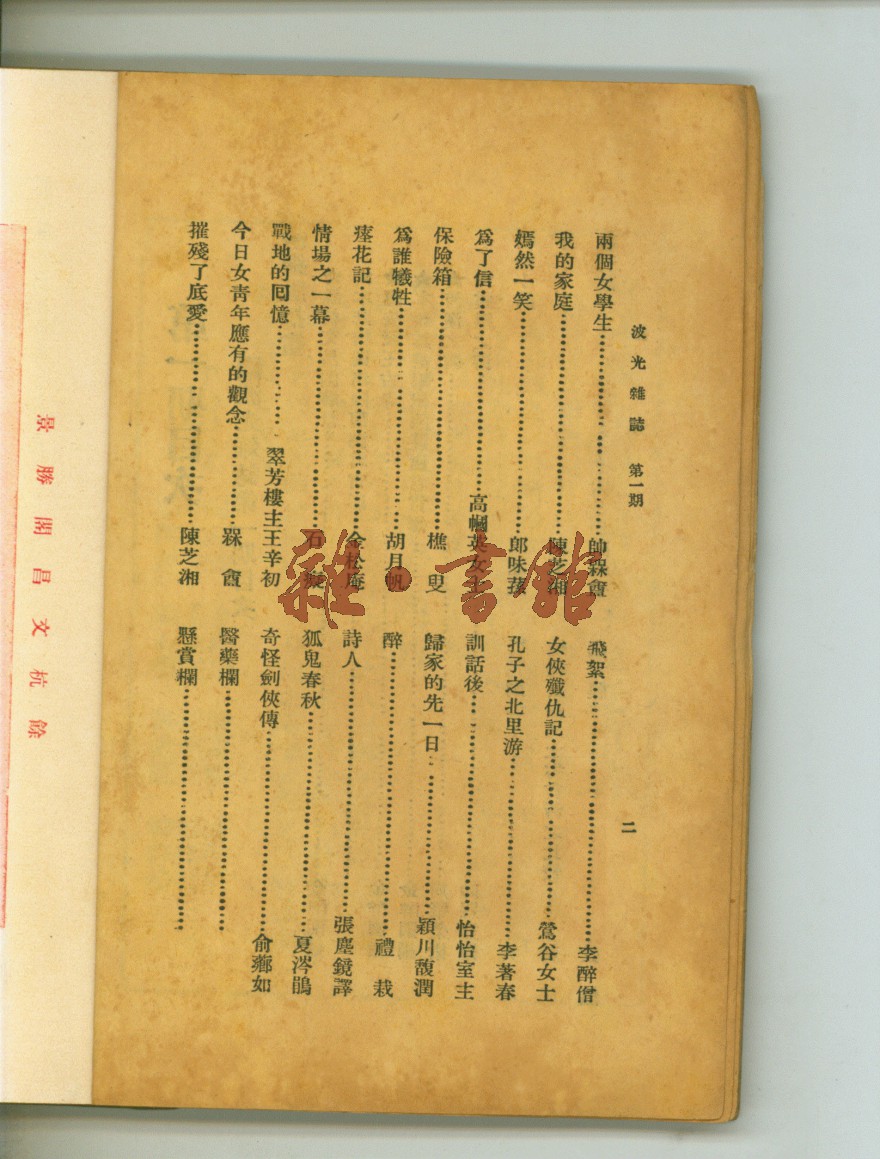 波光雜誌 第一期
二
兩個女學生……帥槑盦
我的家庭……陳芝湘
嫣然一笑……郎味蓀
爲了信……高幗英女士
保險箱……樵叟
爲誰犧牲……胡月帆
瘞花記……金松庵
情場之一幕……石癡
戰地的回憶……翠芳樓主王辛初
今日女青年應有的觀念……槑盦
摧殘了底愛……陳芝湘
飛絮……李醉僧
女俠殲仇記……鶯谷女士
孔子之北里游……李著春
訓話後……怡怡室主
歸家的先一日……穎川馥潤
醉……禮栽
詩人……張塵鏡譯
狐鬼春秋……夏涔鵑
奇怪劍俠傳……俞薌如
醫藥欄……
懸賞欄……
雜·書館
景勝閣昌文杭餘